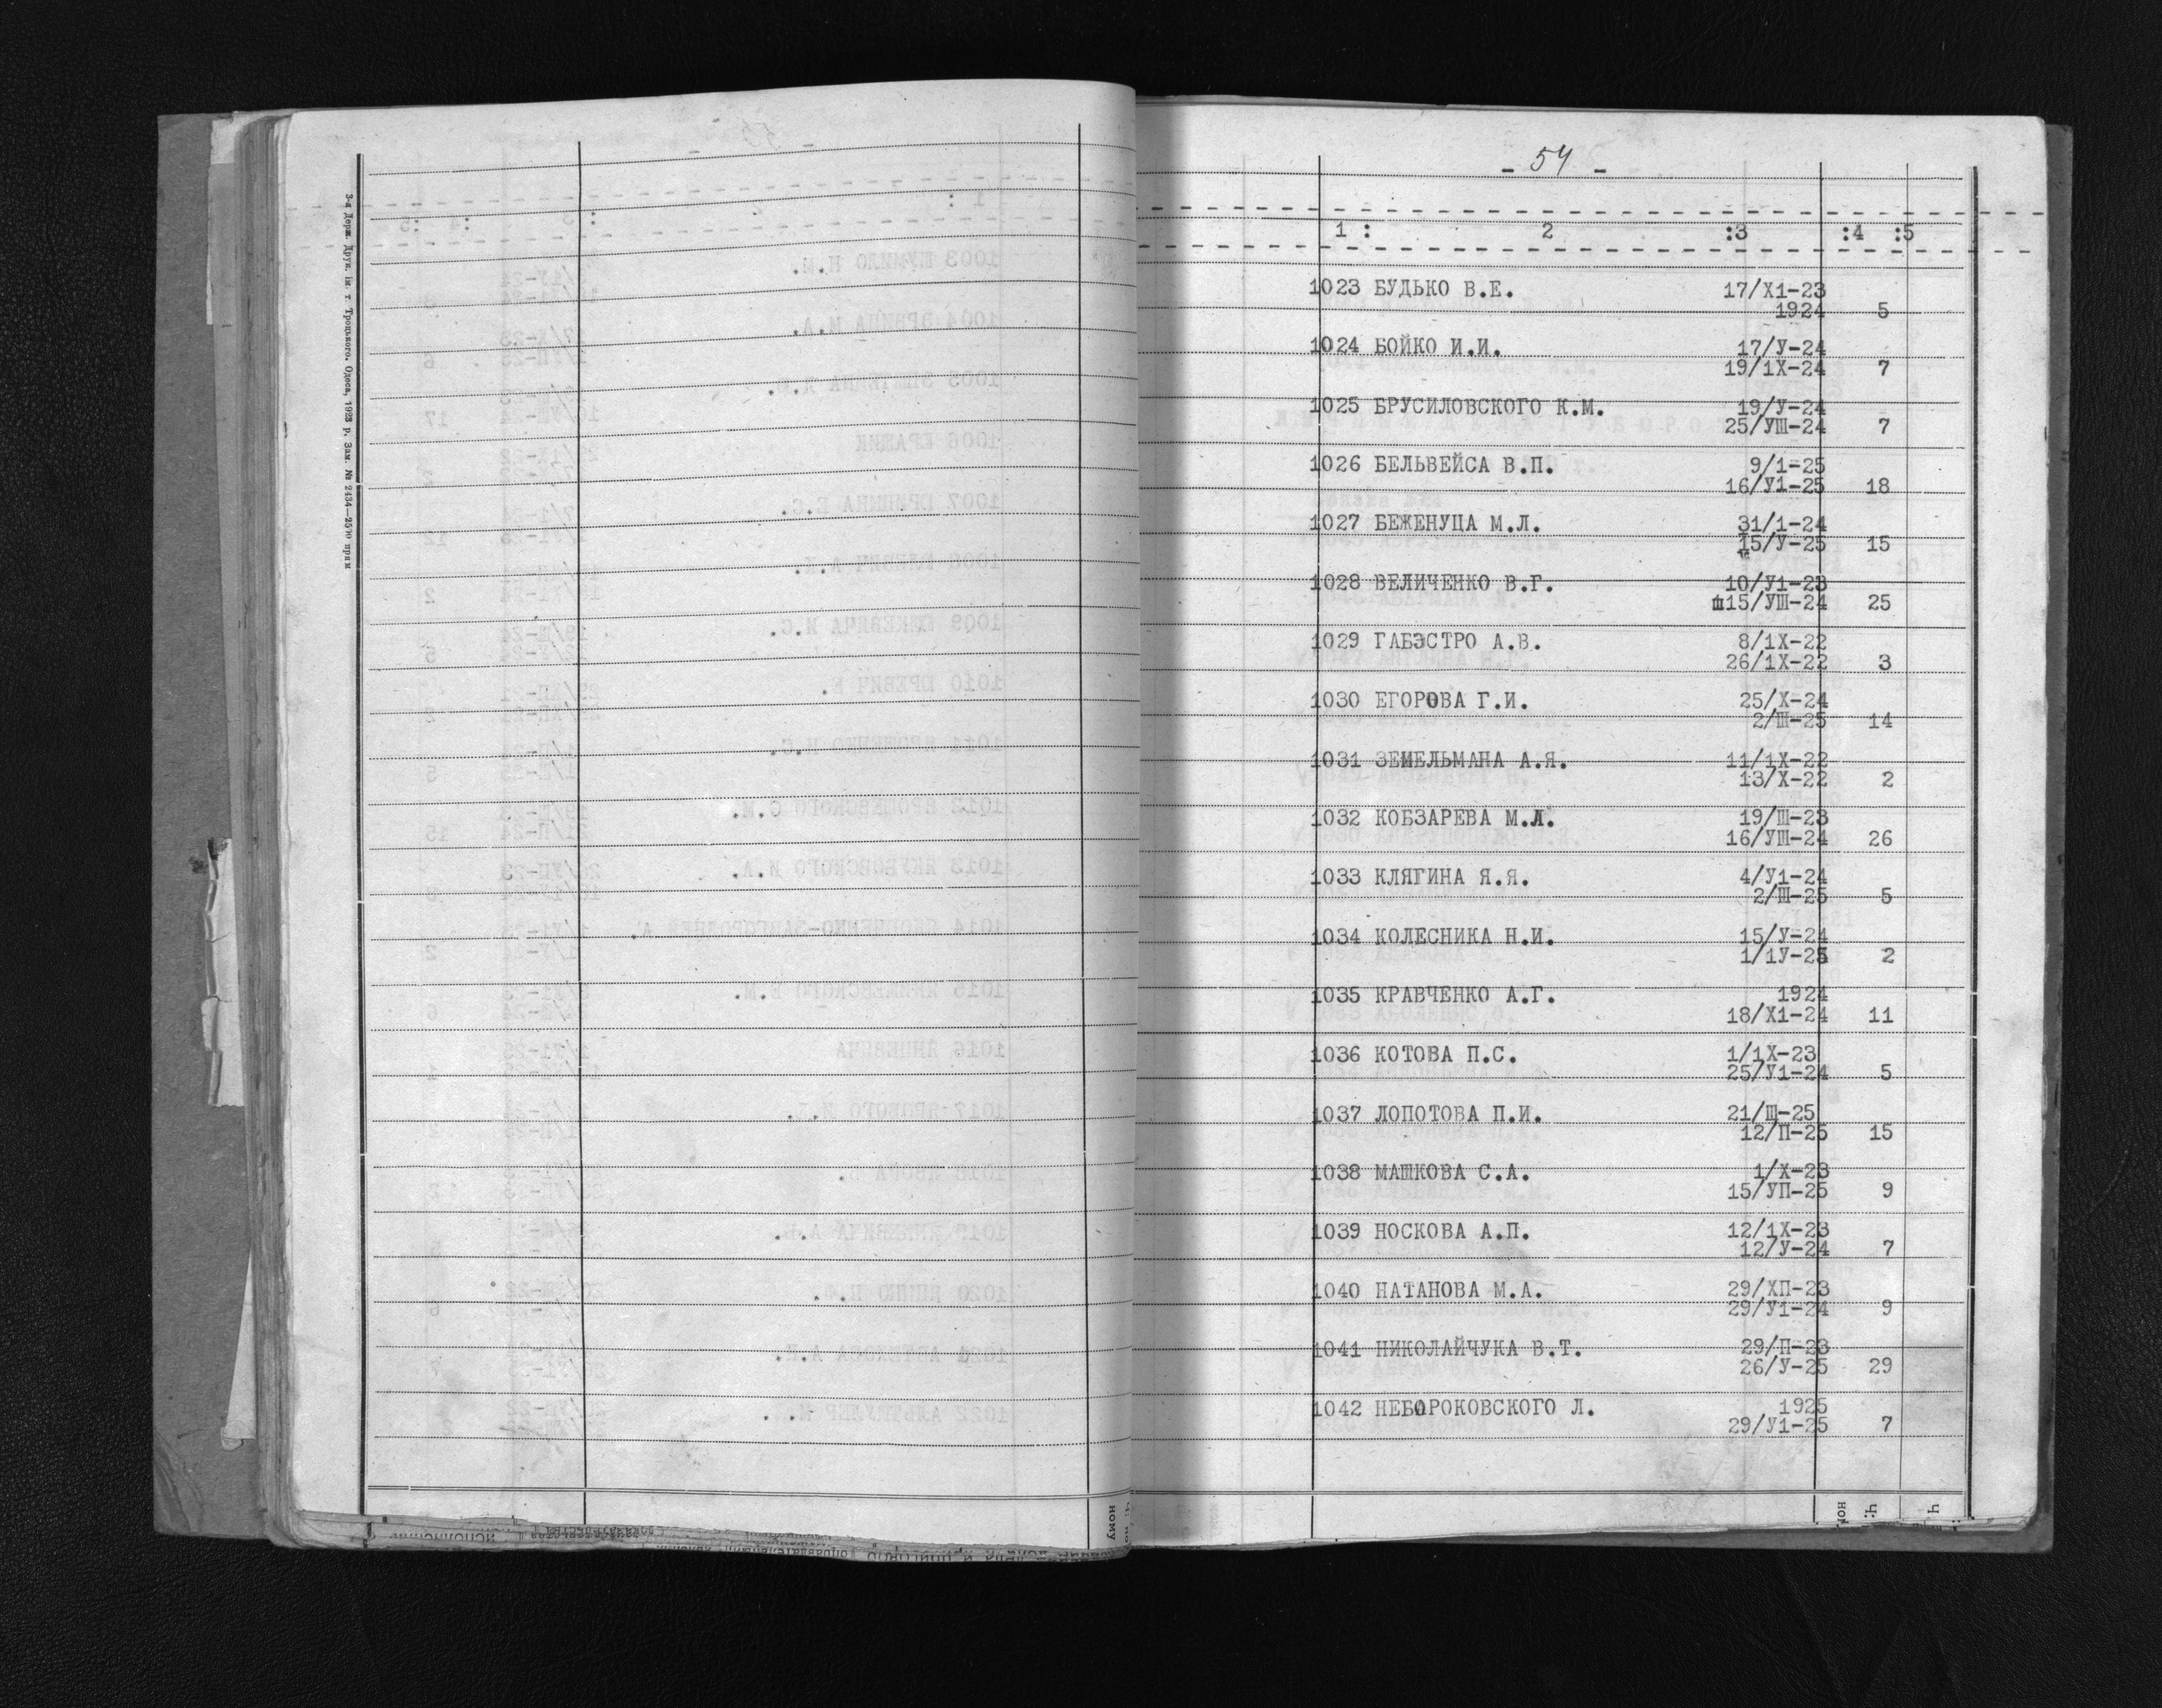 3-я Держ. Друк. ім. т. Троцького. Одеса, 1923 р. Зам. № 2434—2570 прим
- 54 -
1 : 2 :3 :4 :5
1023 БУДЬКО В.Е. 17/X1-23
1924 5
1024 БОЙКО И.И. 17/У-24
19/1Х-24 7
1025 БРУСИЛОВСКОГО К.М. 19/У-24
25/УШ-24 7
1026 БЕЛЬВЕЙСА В.П. 9/1-25
16/У1-25 18
1027 БЕЖЕНУЦА М.Л. 31/1-24
15/У-25 15
1028 ВЕЛИЧЕНКО В.Г. 10/У1-23
15/УШ-24 25
1029 ГАБЭСТРО А.В. 8/1Х-22
26/1Х-22 3
1030 ЕГОРОВА Г.И. 25/Х-24
2/Ш-25 14
1031 ЗЕМЕЛЬМАНА А.Я. 11/1Х-22
13/Х-22 2
1032 КОБЗАРЕВА М.Л. 19/Ш-23
16/УШ-24 26
1033 КЛЯГИНА Я.Я. 4/У1-24
2/Ш-25 5
1034 КОЛЕСНИКА Н.И. 15/У-24
1/1У-25 2
1035 КРАВЧЕНКО А.Г. 1924
18/Х1-24 11
1036 КОТОВА П.С. 1/1Х-23
25/У1-24 5
1037 ЛОПОТОВА П.И. 21/Ш-25
12/П-25 15
1038 МАШКОВА С.А. 1/Х-23
15/УП-25 9
1039 НОСКОВА А.П. 12/1Х-23
12/У-24 7
1040 НАТАНОВА М.А. 29/ХП-23
29/У1-24 9
1041 НИКОЛАЙЧУКА В.Т. 29/П-23
26/У-25 29
1042 НЕБОРОКОВСКОГО Л. 1925
29/У1-25 7